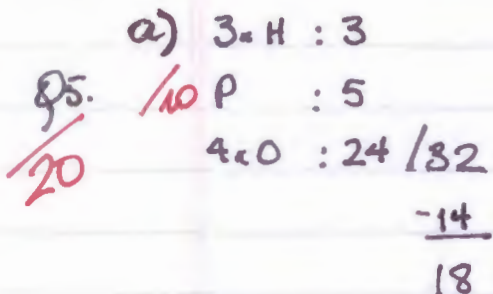 a) 3×H : 3
Q5. /10 P : 5
/20 4×O : 24 /32
-14
18